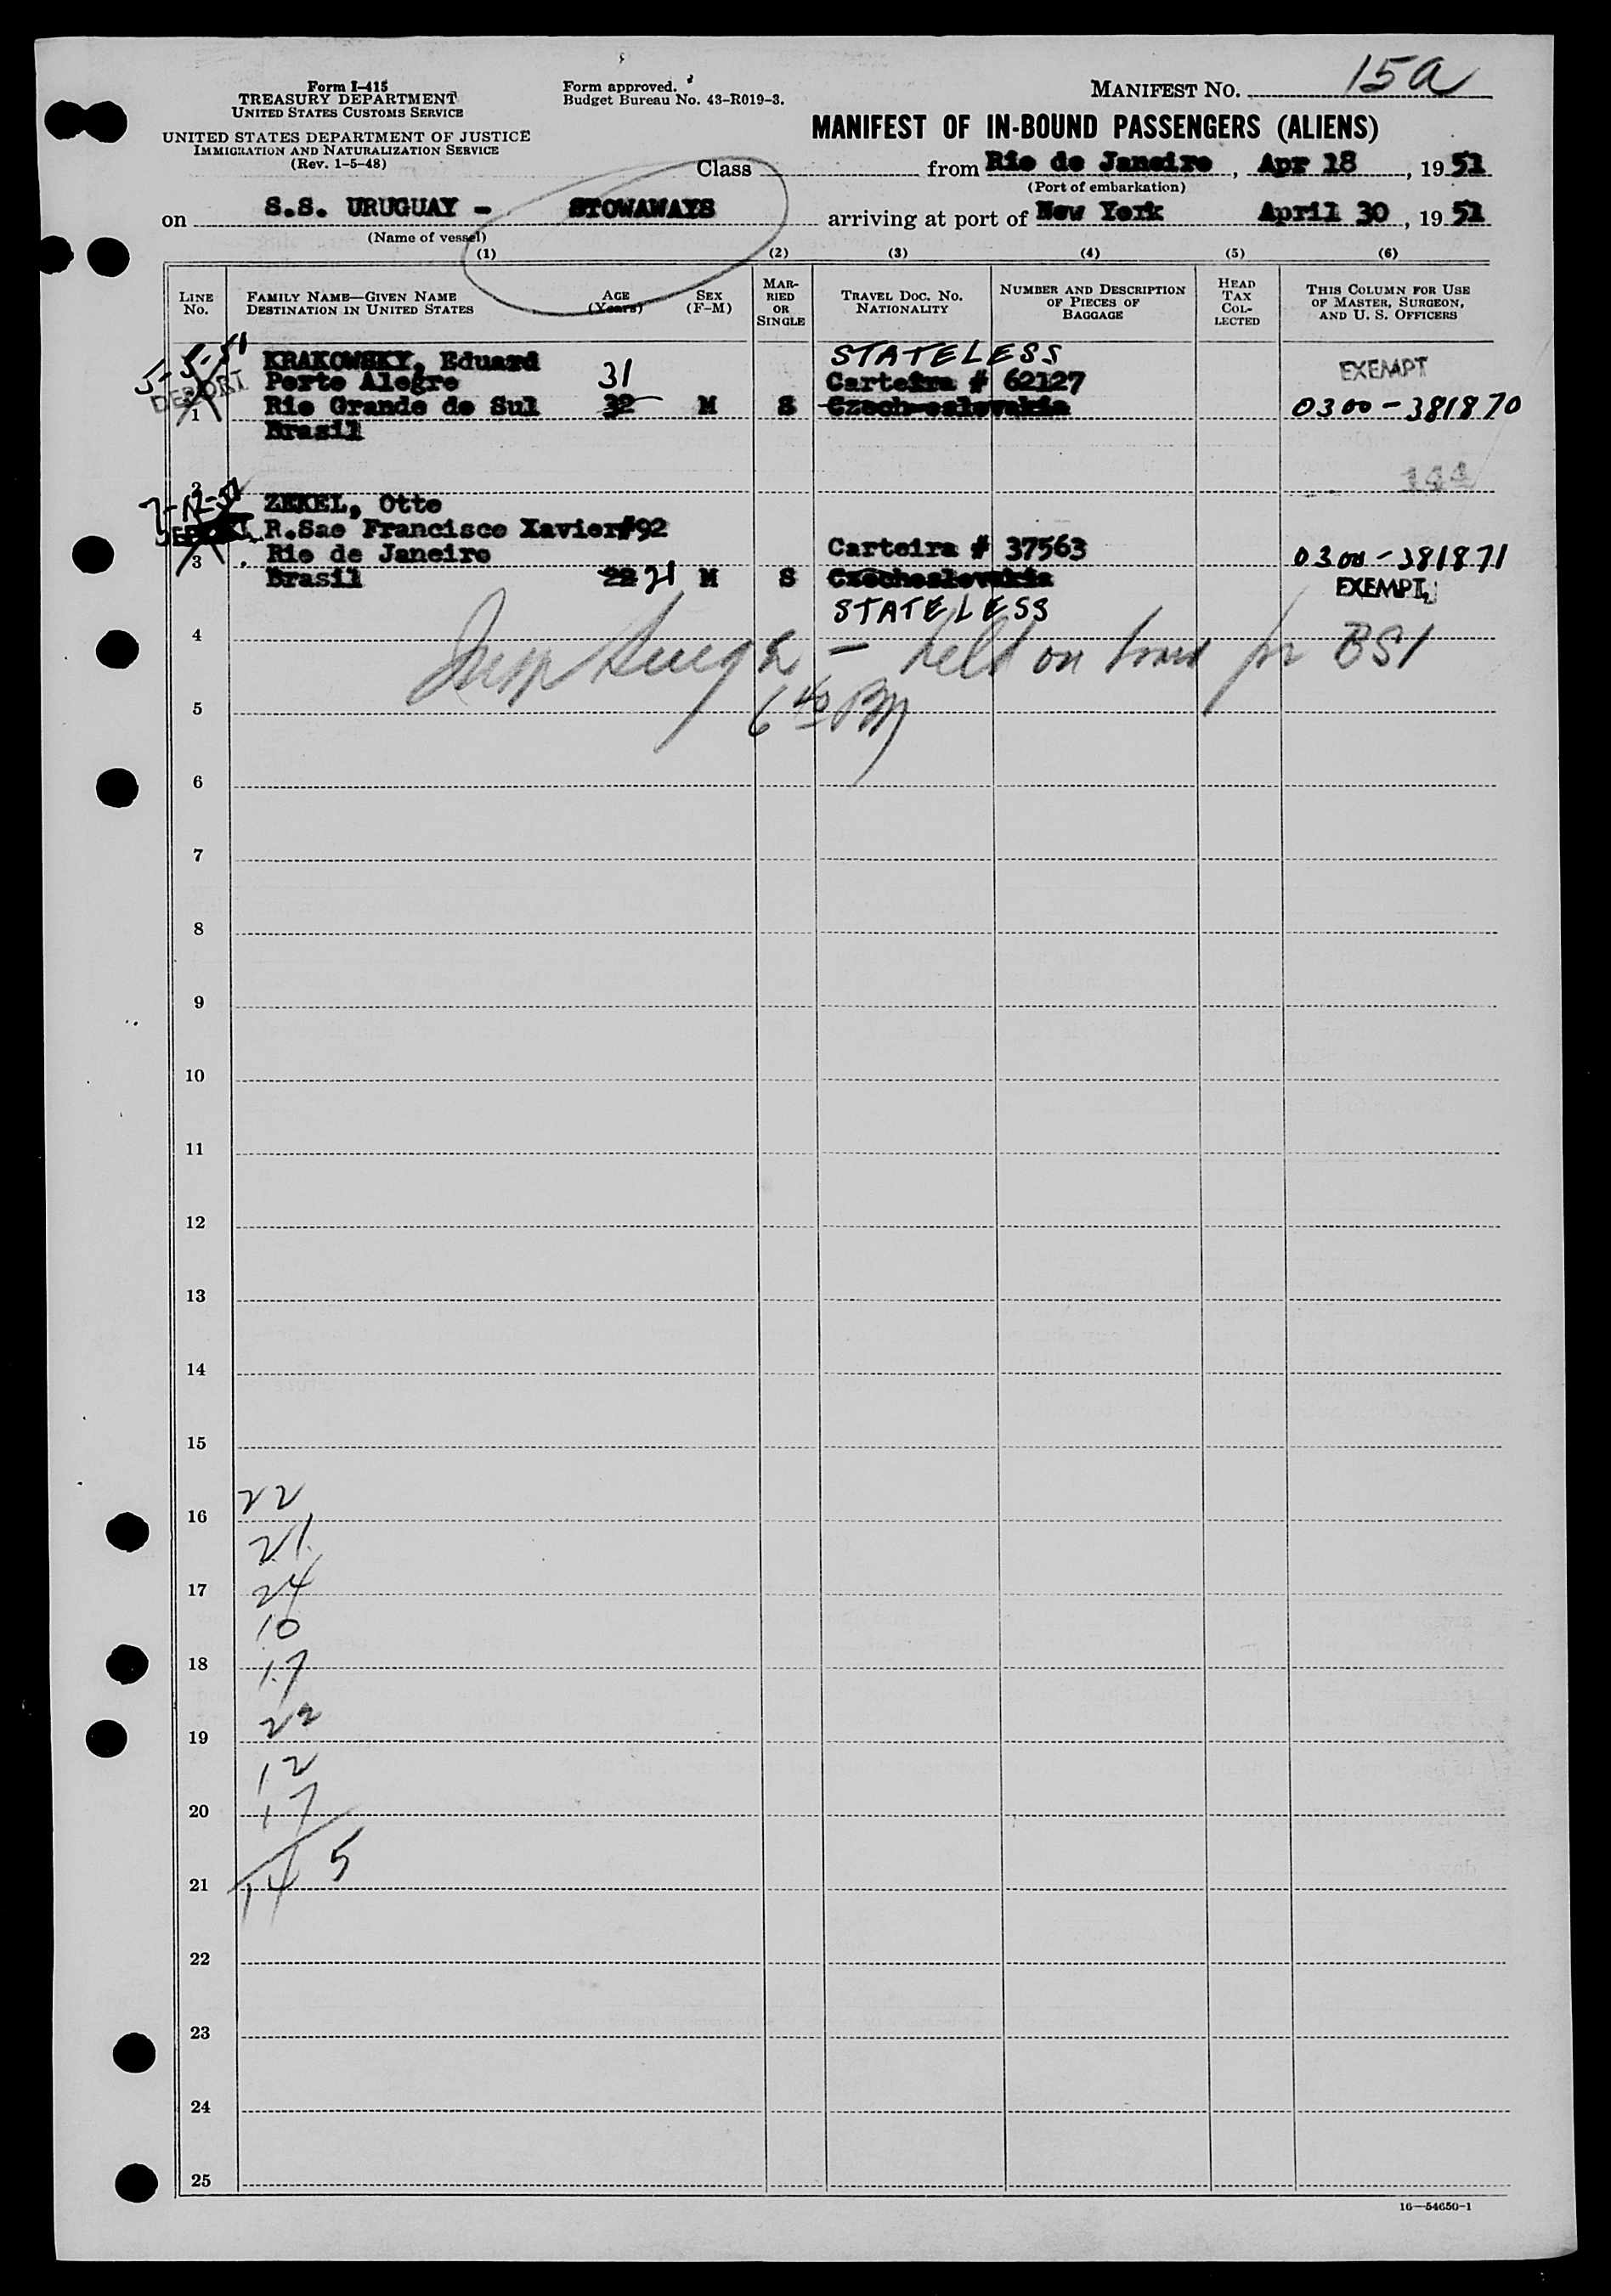 Form I-415
TREASURY DEPARTMENT
UNITED STATES CUSTOMS SERVICE
UNITED STATES DEPARTMENT OF JUSTICE
IMMIGRATION AND NATURALIZATION SERVICE
(Rev. 1-5-48)
Form approved.
Budget Bureau No. 43-R019-3.
MANIFEST NO. 15a
MANIFEST OF IN-BOUND PASSENGERS (ALIENS)
Class from Rio de Janeiro, Apr 18, 1951
(Port of embarkation)
on S.S. URUGUAY - STOWAWAYS arriving at port of New York April 30, 1951
(Name of vessel)
(1) (2) (3) (4) (5) (6)
LINE No. FAMILY NAME—GIVEN NAME DESTINATION IN UNITED STATES AGE (Years) SEX (F-M) MARRIED OR SINGLE TRAVEL DOC. NO. NATIONALITY NUMBER AND DESCRIPTION OF PIECES OF BAGGAGE HEAD TAX COLLECTED THIS COLUMN FOR USE OF MASTER, SURGEON, AND U. S. OFFICERS
5-5-51 KRAKOWSKY, Eduard STATELESS EXEMPT
DEPORT Porto Alegre 31 Carteira # 62127
1 Rio Grande do Sul 32 M S Czech-oslovakia 0300-381870
Brasil
2 144
7-12-51 ZEKEL, Otto
DEPORT R.Sao Francisco Xavier#92
3 Rio de Janeiro Carteira # 37563 0300-381871
Brasil 22 21 M S Czechoslovakia EXEMPT
STATELESS
4 held on board for BSI
5 6 40 PM
6
7
8
9
10
11
12
13
14
15
22
16
21
17 24
10
18 17
22
19
12
20 17
145
21
22
23
24
25
16—54650-1